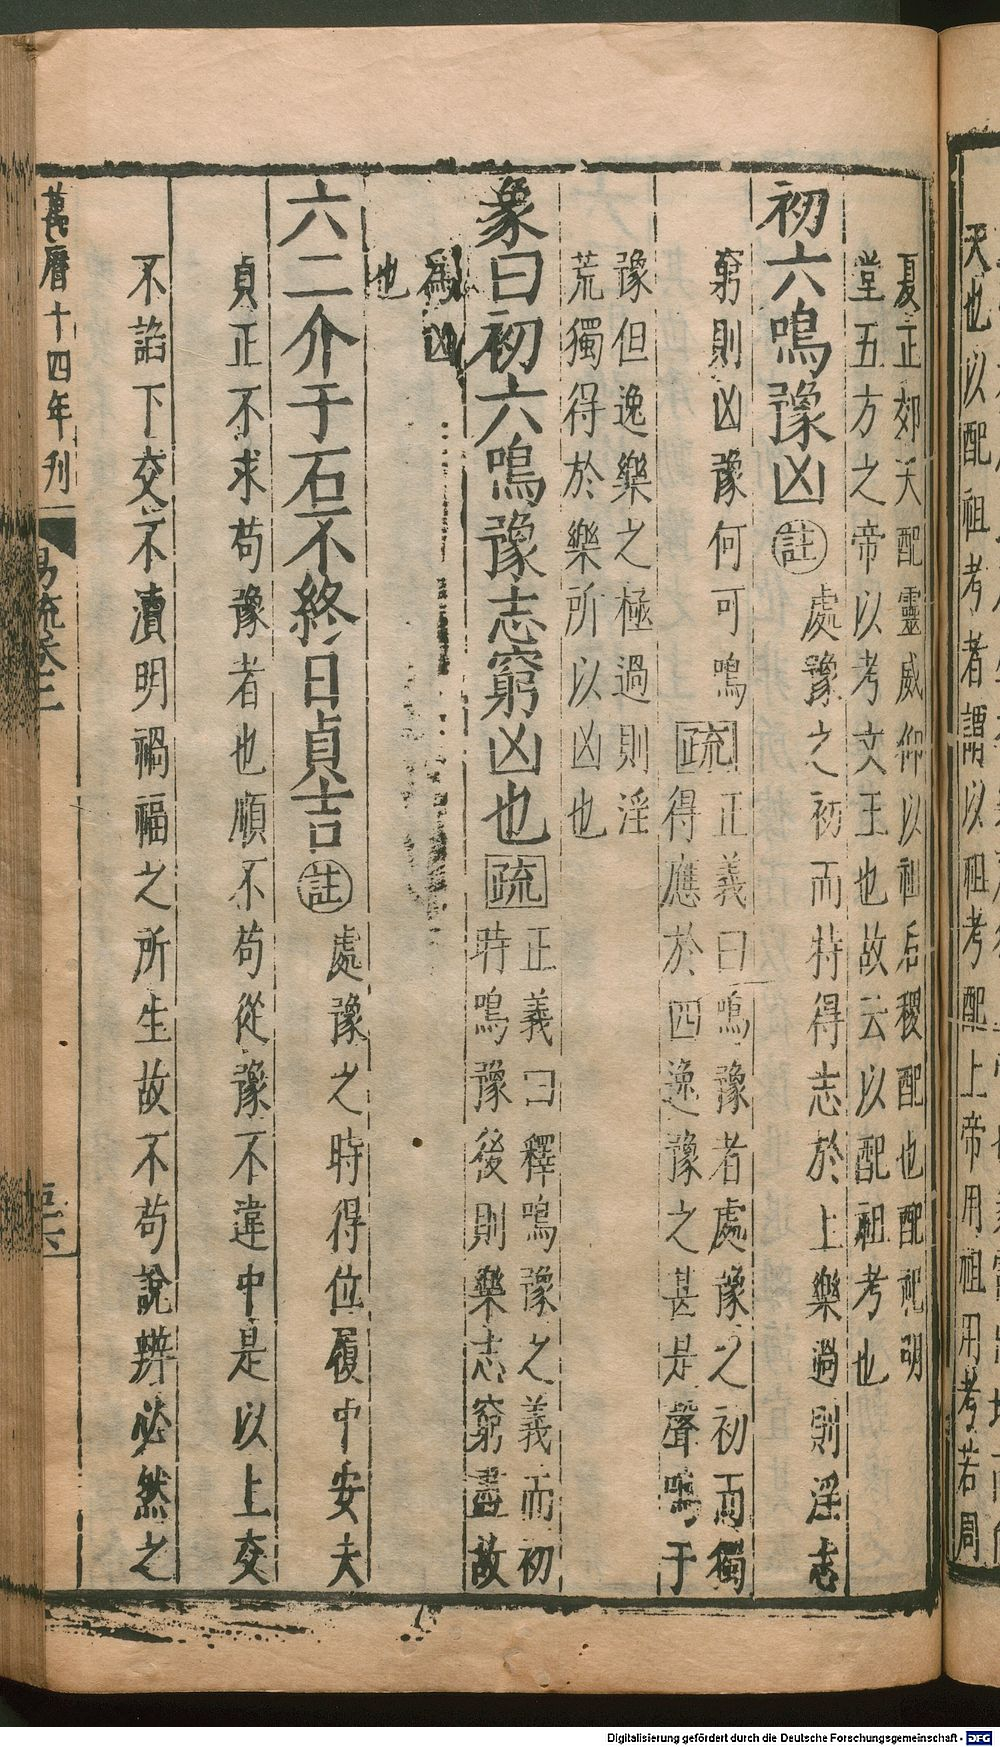 夏正郊天配靈威仰以祖后稷配也配祀明
堂五方之帝以考文王也故云以配祖考也
初六鳴豫凶註處豫之初而特得志於上樂過則淫志
窮則凶豫何可鳴疏正義曰鳴豫者處豫之初而獨
得應於四逸豫之甚是聲鳴于
豫但逸樂之極過則淫
荒獨得於樂所以凶也
象曰初六鳴豫志窮凶也疏正義曰釋鳴豫之義而初
時鳴豫後則樂志窮盡故
為凶
也
六二介于石不終日貞吉註處豫之時得位履中安夫
貞正不求苟豫者也順不苟從豫不違中是以上交
不諂下交不瀆明禍福之所生故不苟說辨必然之
萬曆十四年刊
易疏卷三
天也以配祖考者謂以祖考配上帝用祖用考若周
Digitalisierung gefördert durch die Deutsche Forschungsgemeinschaft - DFG